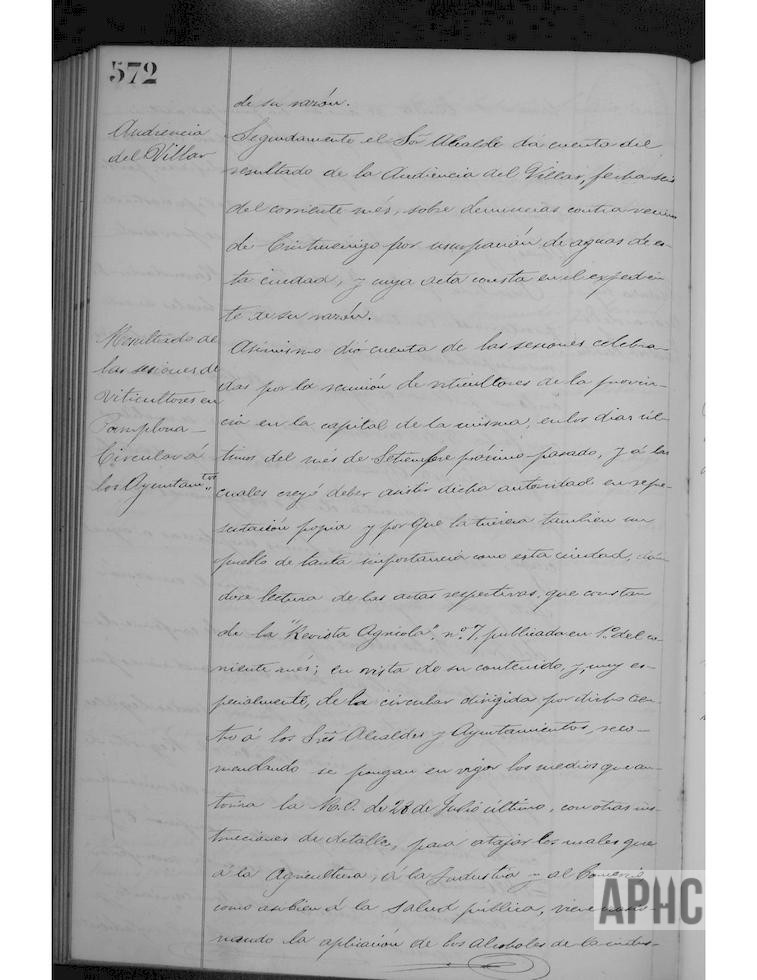 572
de su razón.
Audiencia
del Villar
Seguidamente el Sor Alcalde dá cuenta del
resultado de la Audiencia del Villar, fecha seis
del corriente més, sobre denuncias contra vecinos
de Cintruenigo por usurpación de aguas de es-
ta ciudad, y cuya acta consta en el expedien
te de su razón.
Resultado de
las sesiones de
Viticultores en
Pamplona -
Circular á
los Ayuntam.tos
Asimismo dió cuenta de las sesiones celebra-
das por la reunión de viticultores de la provin-
cia en la capital de la misma, en los dias úl-
timos del més de Setiembre próximo pasado, y á las
cuales creyó deber asistir dicha autoridad en repre-
sentación propia y por que la tuviera tambien un
pueblo de tanta importancia como esta ciudad, dán
dose lectura de las actas respectivas, que constan
de la "Revista Agricola" nº 7, publicada en 1º del co-
rriente més; en vista de su contenido, y, muy es-
pecialmente, de la circular dirigida por dicho cen-
tro á los Sres Alcaldes y Ayuntamientos, reco-
mendando se pongan en vigor los medios que au-
toriza la R.O. de 28 de Julio último, con otras ins-
trucciones de detalle, para atajar los males que
á la Agricultura, á la Industria y al Comercio
como asi bien á la salud pública, viene
nando la aplicación de los alcoholes de la indus-
APHC